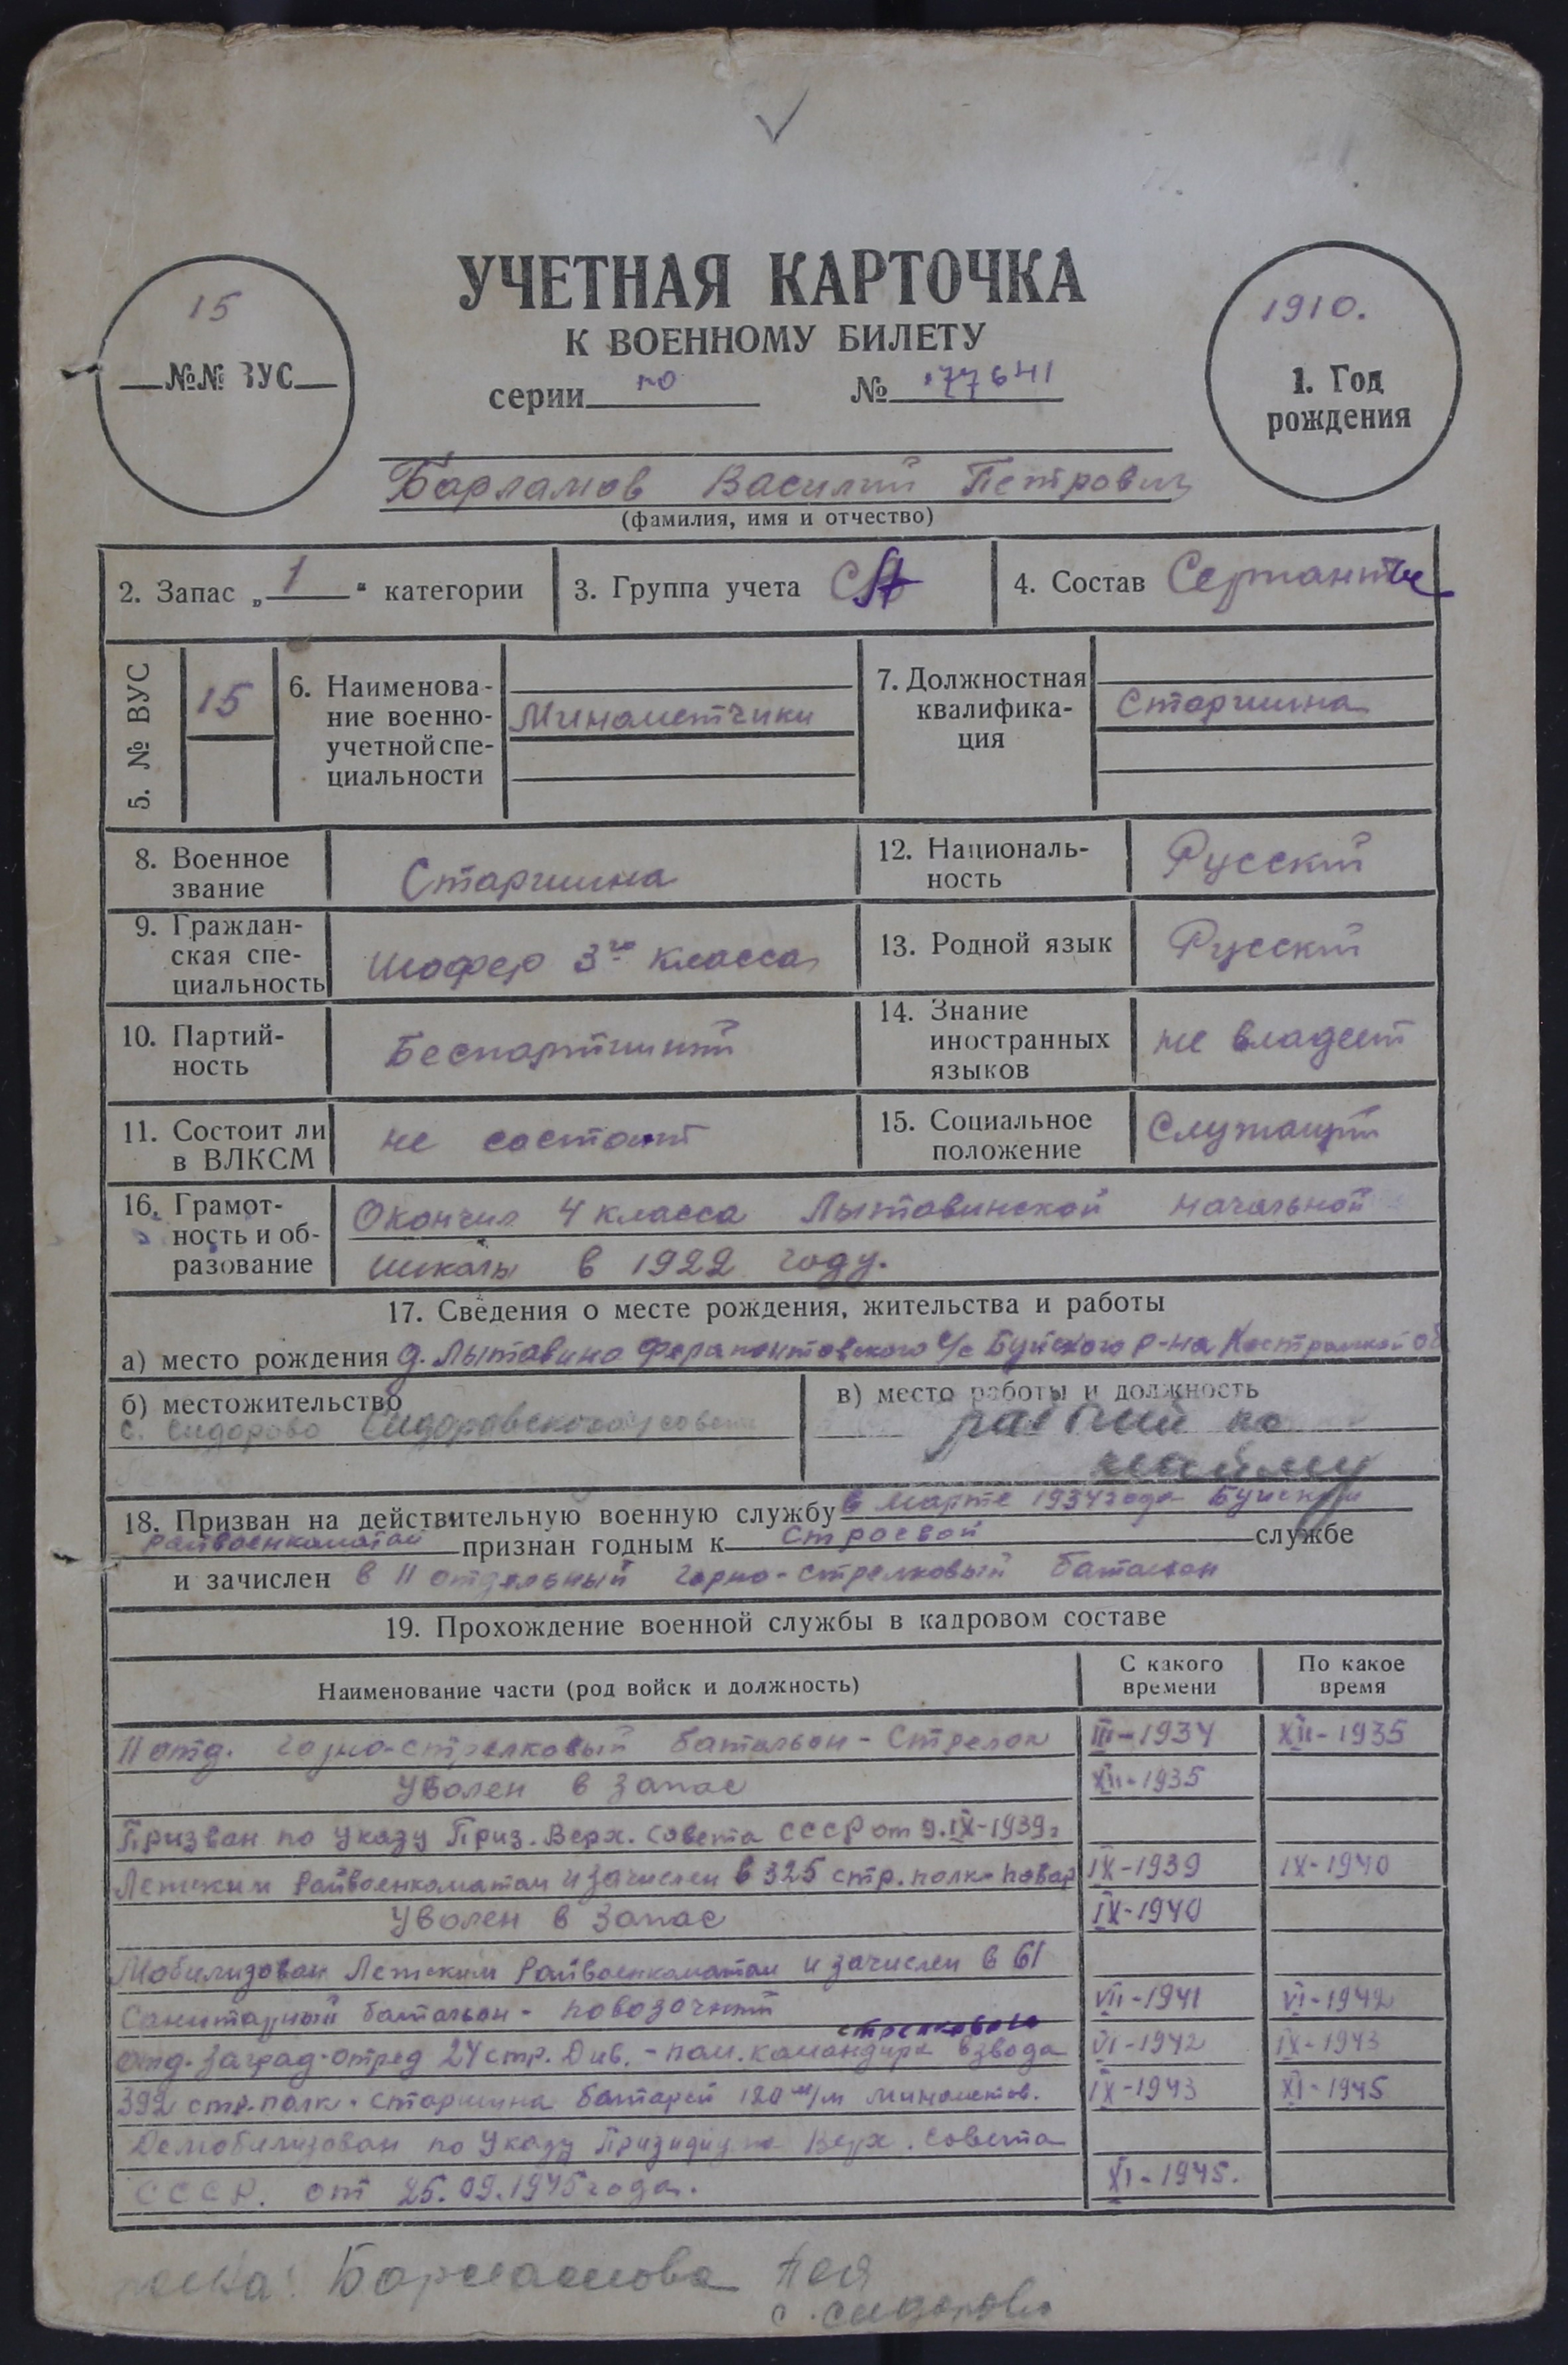 УЧЕТНАЯ КАРТОЧКА
К ВОЕННОМУ БИЛЕТУ
серии по № 77641
15
№№ ВУС
1910.
1. Год
рождения
Барламов Василий Петрович
(фамилия, имя и отчество)
2. Запас „1“ категории
3. Группа учета СА
4. Состав Сержанты
5. № ВУС
15
6. Наименова-
ние военно-
учетной спе-
циальности
Минометчики
7. Должностная
квалифика-
ция
Старшина
8. Военное
звание
Старшина
12. Националь-
ность
Русский
9. Граждан-
ская спе-
циальность
Шофер 3го класса
13. Родной язык
Русский
10. Партий-
ность
Беспартийный
14. Знание
иностранных
языков
не владеет
11. Состоит ли
в ВЛКСМ
не состоит
15. Социальное
положение
Служащий
16. Грамот-
ность и об-
разование
Окончил 4 класса Лытавинской начальной
школы в 1922 году.
17. Сведения о месте рождения, жительства и работы
а) место рождения д. Лытавино Ферапонтовского с/с Буйского р-на Костромской об
б) местожительство
с. Сидорово Сидоровского
в) место работы и должность
рабочий по
найму
18. Призван на действительную военную службу в марте 1934 года Буйским
райвоенкоматом признан годным к строевой службе
и зачислен в 11 отдельный горно-стрелковый батальон
19. Прохождение военной службы в кадровом составе
Наименование части (род войск и должность)
С какого
времени
По какое
время
11 отд. горно-стрелковый батальон - Стрелок III-1934 XII-1935
Уволен в запас XII-1935
Призван по указу През. Верх. Совета СССР от 9.IX-1939г
райвоенкоматом и зачислен в 325 стр. полк - повар IX-1939 IX-1940
Уволен в запас IX-1940
Мобилизован райвоенкоматом и зачислен в 61
Санитарный батальон - повозочный VII-1941 VI-1942
стрелкового
отд. заград. отряд 24 стр. Див. - пом. командира взвода VI-1942 IX-1943
392 стр. полк - старшина батареи 120 м/м минометов. IX-1943 XI-1945
Демобилизован по Указу Призидиума Верх. Совета
СССР. от 25.09.1945 года. XI-1945.
Барламова
с. Сидорово